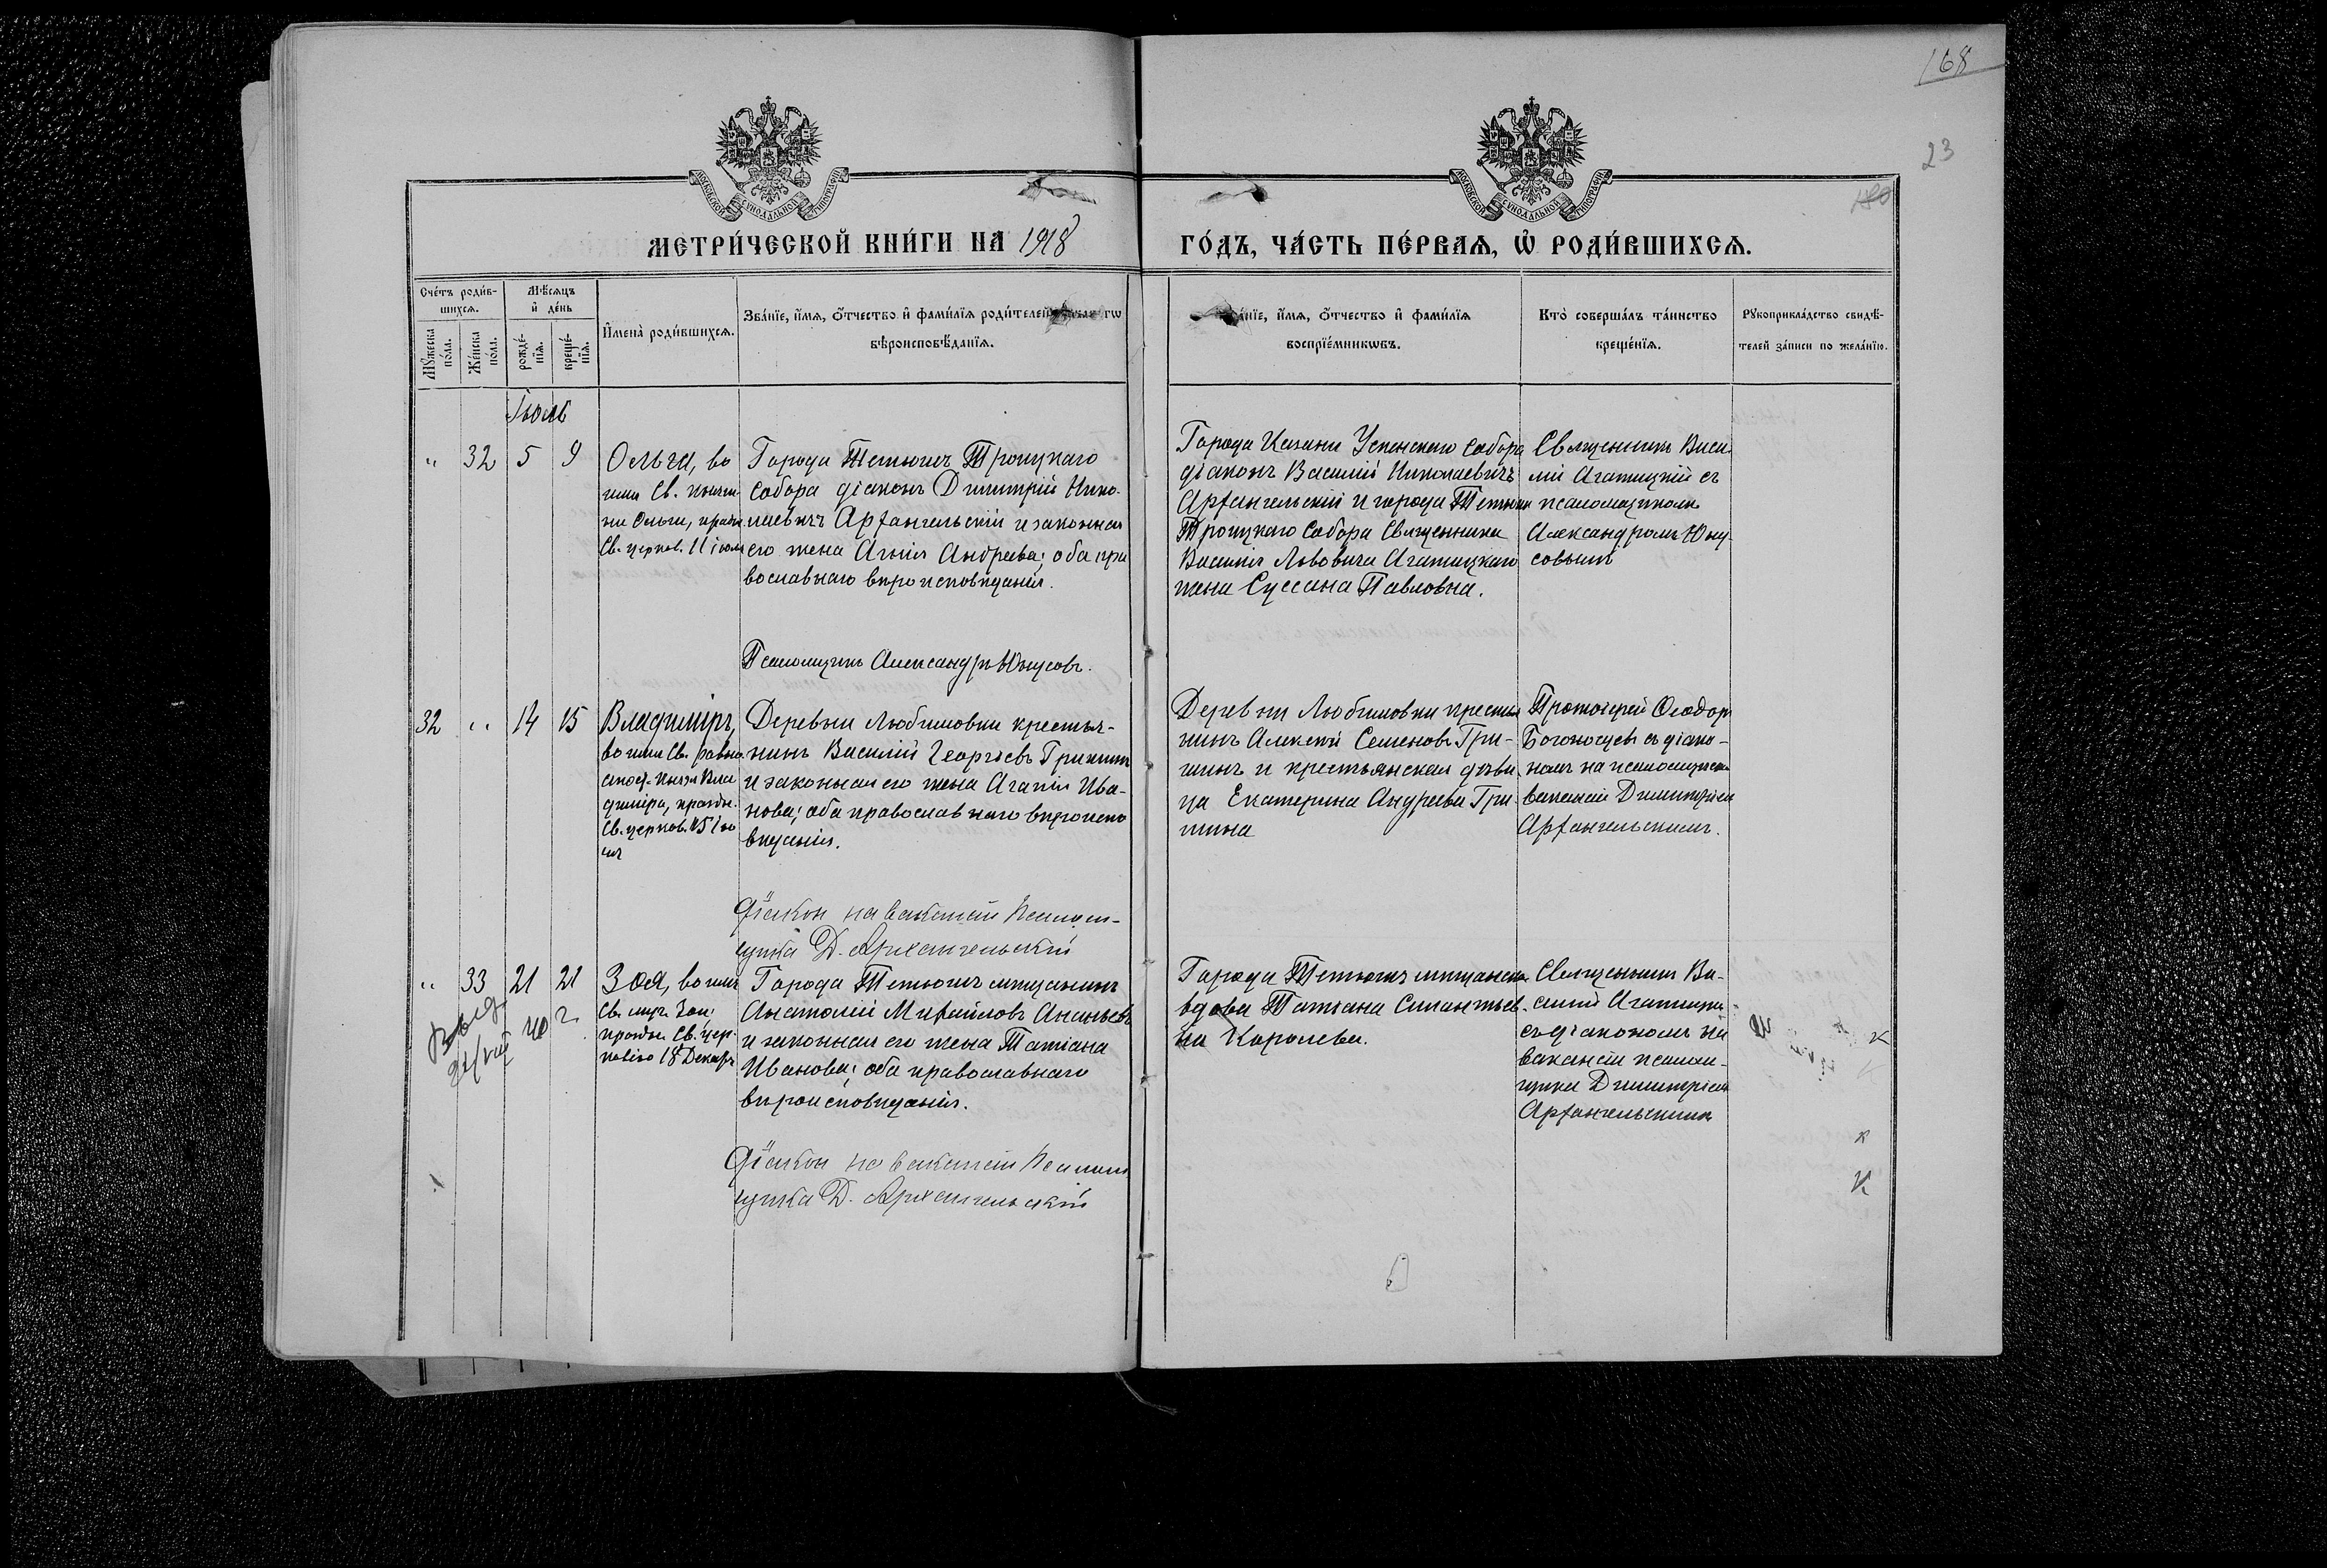 168
23
180
МОСКОВСКОЙ СѴНОДАЛЬНОЙ ТИПОГРАФІИ
МОСКОВСКОЙ СѴНОДАЛЬНОЙ ТИПОГРАФІИ
МЕТРИ́ЧЕСКОЙ КНИ́ГИ НА 1918
ГО́ДЪ, ЧА́СТЬ ПЕ́РВАѦ, Ѡ҆ РОДИ́ВШИХСѦ.
Сче́тъ роди́в-
шихсѧ.
Мѣ́сѧцъ
и҆ де́нь
Мꙋ́жеска
по́ла.
Же́нска
по́ла.
рожде́-
нїѧ.
креще́-
нїѧ.
И҆мена̀ роди́вшихсѧ.
Зва́нїе, и҆́мѧ, ѻ҆́тчество и҆ фами́лїѧ роди́телей
вѣроисповѣ́данїѧ.
и҆́мѧ, ѻ҆́тчество и҆ фами́лїѧ
воспрїе́мникѡвъ.
Кто̀ соверша́лъ та́инство
креще́нїѧ.
Рꙋкоприкла́дство свидѣ́-
телей за́писи по жела́нїю.
Іюль
„ 32 5 9
Ольга, во
имя Св. княги-
ни Ольги, праздн.
Св. церков. 11 іюля
Города Тетюшъ Троицкаго
собора діаконъ Димитрій Нико-
лаевичъ Архангельскій и законная
его жена Агнія Андреева; оба пра
вославнаго вѣроисповѣданія.
Псаломщикъ Александръ Юнусовъ.
Города Казани Успенскаго собора
діаконъ Василій Николаевичъ
Архангельскій и города Тетюшъ
Троицкаго Собора Священника
Василія Львовича Агатицкаго
жена Суссана Павловна.
Священникъ Васи-
лій Агатицкій съ
псаломщикомъ
Александромъ Юну-
совымъ
32 „ 14 15
Владиміръ,
во имя Св. равно
апост. князя Вла
диміра, праздн.
Св. церков. 15 Ію
ля
Деревни Любимовки крестья-
нинъ Василій Георгіевъ Гришинъ
и законная его жена Агапія Ива-
нова; оба православнаго вѣроиспо
вѣданія.
Діаконъ на вакансіи Псалом-
щика Д. Архангельскій
Деревни Любимовки крестья
нинъ Алексѣй Семеновъ Гри-
шинъ и крестьянская дѣви-
ца Екатерина Андреева Гри-
шина
Протоіерей Ѳеодоръ
Богоносцевъ съ діако-
номъ на псаломщической
вакансіи Димитріемъ
Архангельскимъ.
„ 33 21 21
Зоя, во имя
Св. муч. Зои;
праздн. Св. цер-
ковію 18 Декабря
Города Тетюшъ мѣщанинъ
Анатолій Михайловъ Ананьевъ
и законная его жена Татіана
Иванова; оба православнаго
вѣроисповѣданія.
Діаконъ на вакансіи Псалом
щика Д. Архангельскій
Города Тетюшъ мѣщанская
вдова Татіана Силантьев-
на Королева.
Священникъ Ва-
силій Агатицкій
съ діакономъ на
вакансіи псалом-
щика Димитріемъ
Архангельскимъ
40 г.